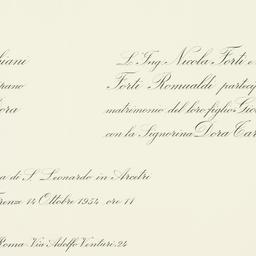 L'Ing. Nicola Forti e
Forti Romualdi partecip
matrimonio del loro figlio Gio
con la Signorina Dora Tar
iani
ipano
ora
a di S. Leonardo in Arcetri
irenze 14 Ottobre 1954 ore 11
Roma Via Adolfo Venturi, 24